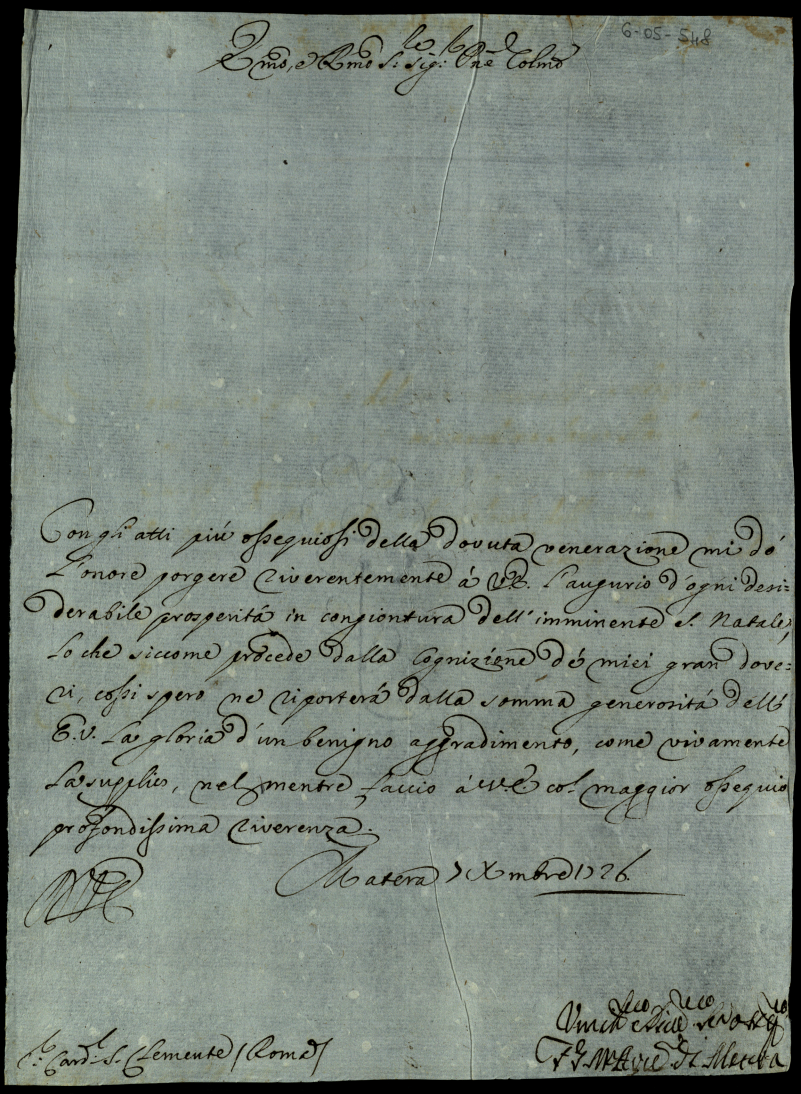 6-05-548
Emo, e Rmo Sig.r Sig.r Pne Colmo
Con gli atti più ossequiosi della dovuta venerazione mi dò
l'onore porgere riverentemente à V.E. l'augurio d'ogni desi=
derabile prosperità in congiontura dell'imminente S. Natale,
Lo che siccome procede dalla Cognizione dé miei gran dove=
ri, cossì spero ne riporterà dalla somma generosità dell'
E.V. La gloria d'un benigno aggradimento, come vivamente
La supplico, nel mentre faccio à V.E. col maggior ossequio
profondissima riverenza.
Matera 7 Xmbre 1726.
VE
S.r Card.l S. Clemente / Roma /
di Matera